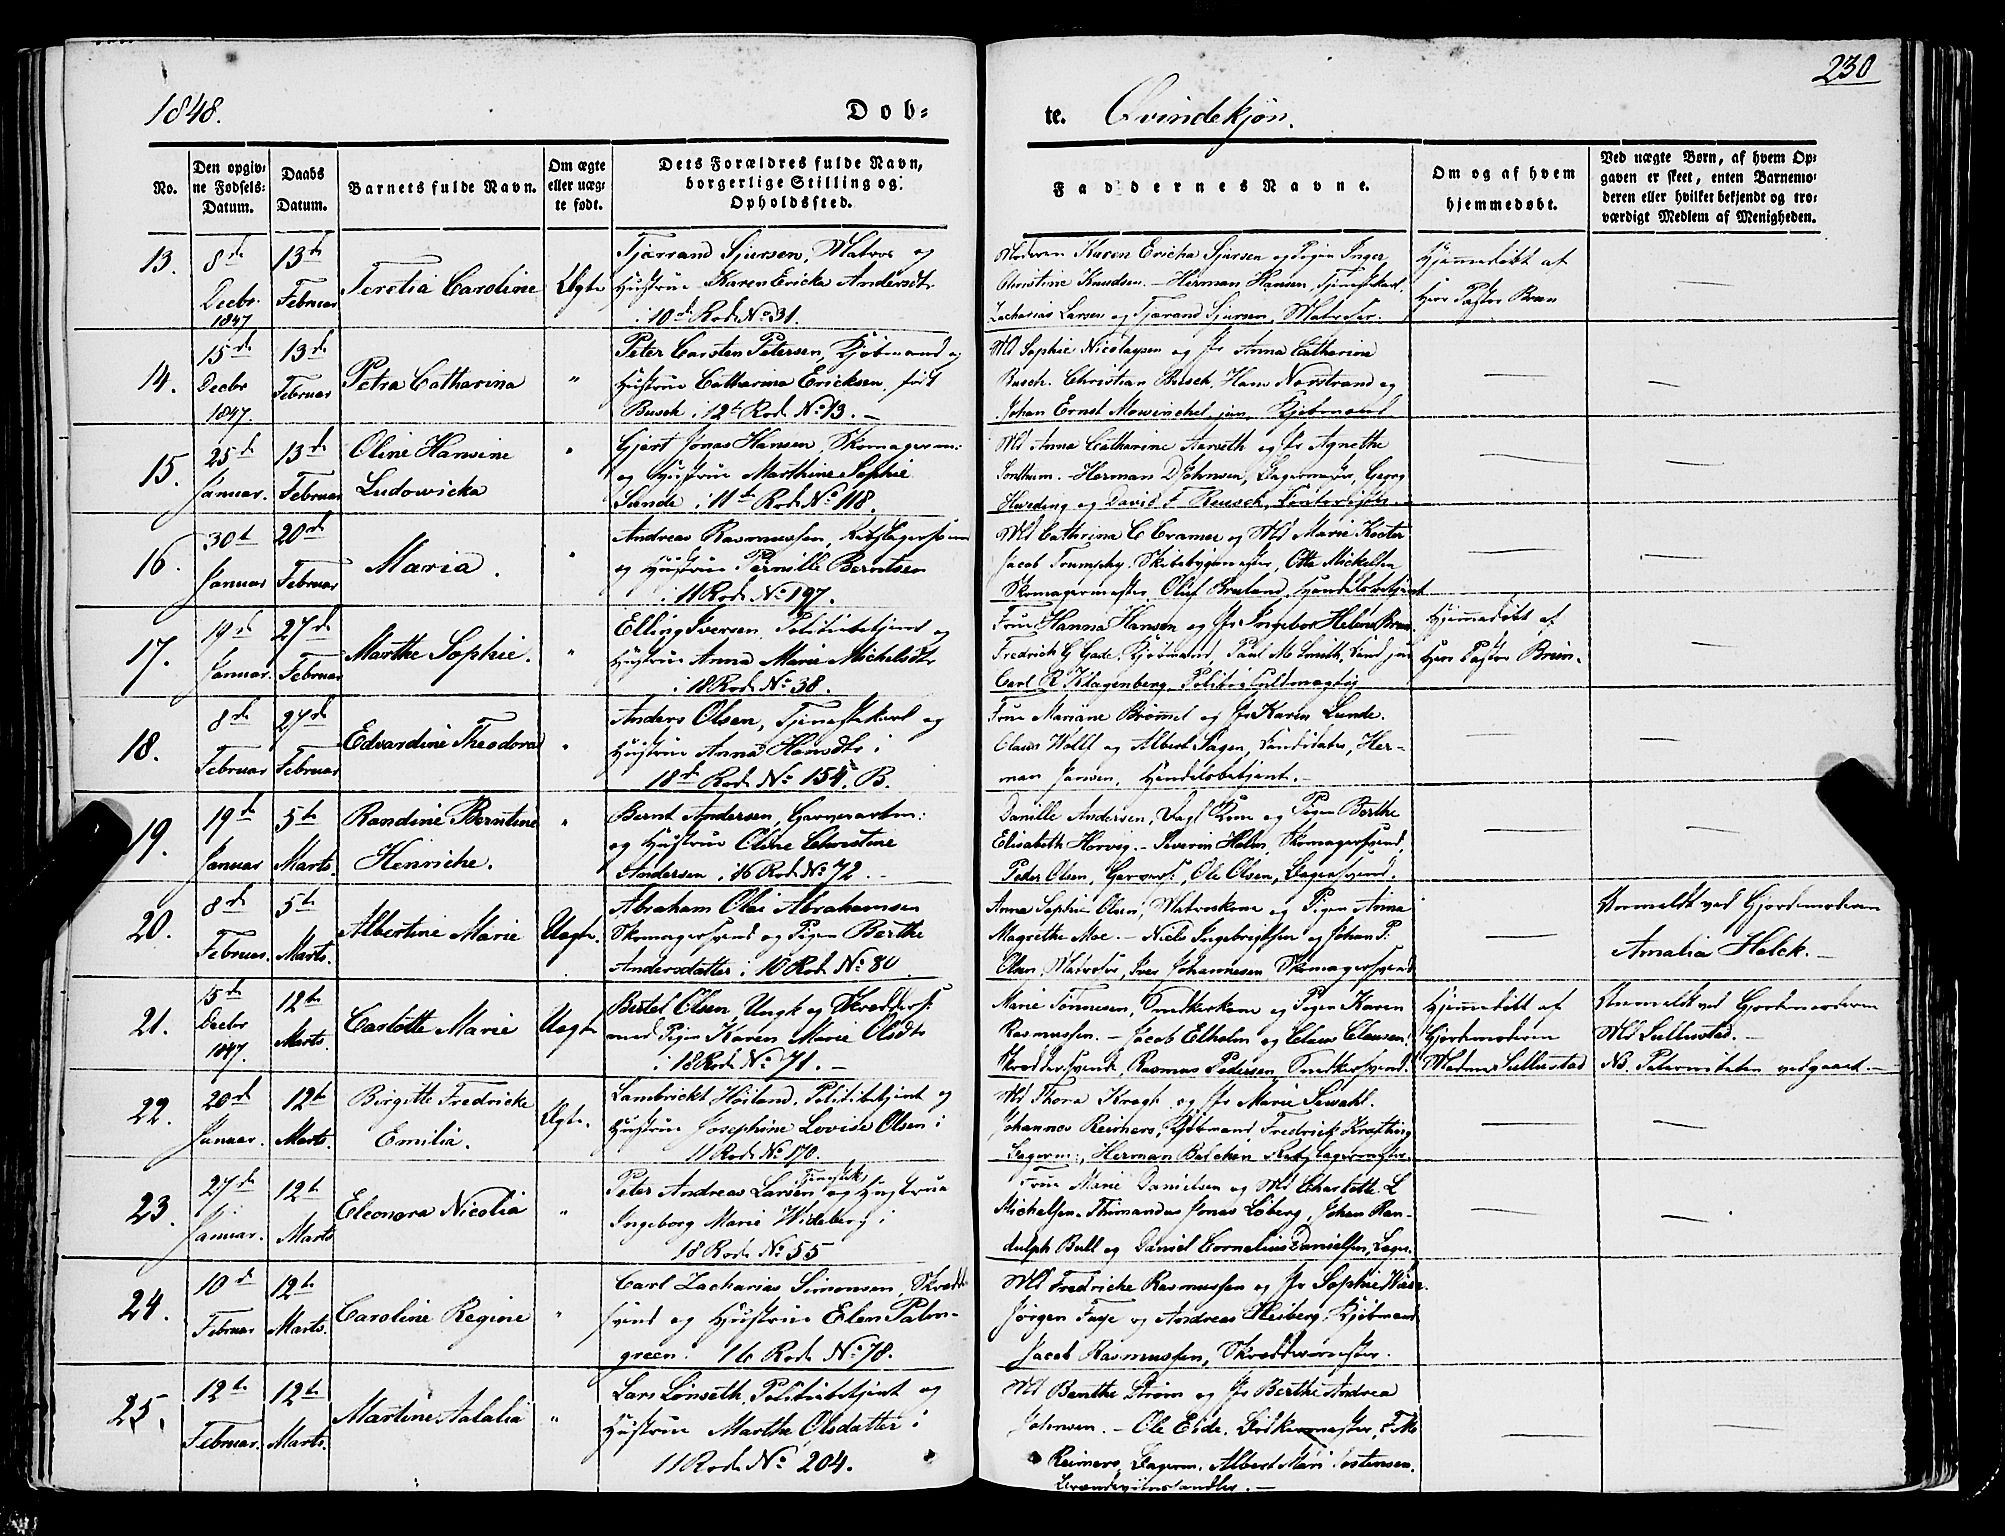 230
1848.
Dob-
te. Qvindekjøn.
No.
Den opgiv-
ne Fødsels-
Datum.
Daabs
Datum.
Barnets fulde Navn.
Om ægte
eller uæg-
te født.
Dets Forældres fulde Navn,
borgerlige Stilling og
Opholdssted.
Faddernes Navne.
Om og af hvem
hjemmedøbt.
Ved uægte Børn, af hvem Op-
gaven er skeet, enten Barnemo-
deren eller hvilket bekjendt og tro-
værdigt Medlem af Menigheden.
13.
8de
Decbr.
1847
13de
Februar
Teretia Caroline
Ægte
Tjærand Sjursen, Matros og
Hustrue Karen Ericka Andersdt
i 10de Rode No 31.
Moderen Karen Ericha Sjursen og Pigen Inger
Christine Knudsen. - Herman Hansen, Tjenestekarl
Zacharias Larsen og Tjærand Sjursen, Matroser.
Hjemmedøbt af
Herr Pastor Brun
14.
15de
Decbr
1847.
13de
Februar
Petra Catharina
"
Peter Carsten Petersen, Kjøbmand og
Hustrue Catharina Ericksen, født
Busch i 12te Rode No 13. -
Md Sophie Nicolaysen og Jfr Anna Catharine
Busch. Christian Busch, Hans Norstrand og
Johan Ernst Mowinckel jun, Kjøbmænd
15.
25de
Januar.
13de
Februar
Oline Hansine
Ludowicka
"
Gjert Jonas Hansen, Skomagersv:
og Hustrue Marthine Sophie
Sunde i 11te Rode No 118.
Md Anna Catharine Aarseth og Jfr Agnethe
Sonthum. - Herman D Johnsen, Bagermester, Georg
Hveding og David F Reusch,
16.
30te
Januar
20de
Februar
Maria.
"
Andreas Rasmussen, Rebslagersvend
og Hustrue Pernille Berntsen
i 11 Rode No 197.
Md Cathrina C Cramer og Md Marie Koster
Jacob Trumpy, Skibsbygmester, Otte Mickelsen
Skomagermester, Oluf Breland, Handelsbetjent
17.
19de
Januar.
27de
Februar
Marthe Sophie.
"
Elling Iversen, Politiebetjent og
Hustrue Anna Marie Michelsdt
i 18 Rode No 38.
Frue Hanna Hansen og Jfr Ingebor Helene Brun
Fredrich G Gade, Kjøbmand, Paul M Smith, Cand jur
Carl R Klagenberg, Politie
Hjemmedøbt af
Herr Pastor Brun.
18.
8de
Februar
27de
Februar
Edvardine Theodora
"
Anders Olsen, Tjenestekarl og
Hustrue Anna Hansdtr i
18de Rode No 154. B.
Frue Mariane Brømel og Jfr Karen Lunde.
Claus Wallt og Albert Sagen, Candidater, Her-
man Jansen, Handelsbetjent. -
19.
19de
Januar
5te
Marts.
Randine Berntine
Henricke.
"
Bernt Andersen, Garverarbm:
og Hustrue Oline Christine
Andersen i 16 Rode No 72. -
Danille Andersen, Dagl Kone og Pigen Berthe
Elisabeth Hervig. - Severin Holm, Skomagersvend,
Peder Olsen, Garvers:, Ole Olsen, Bagersvend.
20.
8de
Februar.
5te
Marts.
Albertine Marie
Uægte.
Abraham Olai Abrahamsen
Skomagersvend og Pigen Berthe
Andersdatter i 10 Rode No 80
Anna Sophie Olsen, Matroskone og Pigen Anna
Magrethe Moe. - Niels Ingebrigtsen og Johan P:
Olsen, Matroser, Iver Johannesen Skomagersvend
Anmeldt ved Gjordemoderen
Amalia Holck. -
21.
15de
Decbr
1847.
12te
Marts.
Carlotte Marie
Uægte
Bertel Olsen, Ungk og Skrædders:
med Pigen Karen Marie Olsdtr
i 18 Rode No 71. -
Marie Tønnesen, Snedkerkone og Pigen Karen
Rasmussen. - Jacob Elholm og Claus Clausen,
Skræddersvende, Rasmus Pedersen, Snedkersvend.
Hjemmedøbt af
Gjordemoderen
Madme Sullustad
Anmeldt ved Gjordemoderen
Md Sullustad. -
NB. Paterniteten vedgaaet. -
22.
20de
Januar.
12te
Marts.
Birgitte Fredricke
Emilia.
Ægte.
Lambrickt Høiland, Politiebetjent og
Hustrue Josephine Lovise Olsen i
11 Rode No 170.
Md Thora Kragh og Jfr Marie Sewahl.
Johannes Reimers, Kjøbmand, Fredrick Kræfting
Bagerm:, Herman Balchen Rebslagermester
23.
27de
Januar.
12te
Marts
Eleonora Nicolia
"
Peter Andreas Larsen Tjenestek og Hustrue
Ingeborg Marie Wideberg i
18 Rode No 55
Frue Marie Danielsen og Md Charlotte L
Michelsen. Thimandus Jonas Løberg, Johan Ran-
dulph Bull og Daniel Cornelius Danielsen, Læger.
24.
10de
Februar
12te
Marts.
Caroline Regine
"
Carl Zacharias Simonsen, Skrædd
svend og Hustrue Elen Palm-
green. 16 Rode No 78.
Md Fredricke Rasmussen og Jfr Sophie
Jørgen Faye og Andreas Kjøbmænd
Jacob Rasmussen, Skræddermester.
25.
12te
Februar.
12te
Marts.
Martine Aalalia
"
Lars Lønseth, Politiebetjent og
Hustrue Marthe Olsdatter i
11 Rode No 204.
Md Benthe Strøm og Jfr Berthe Andrea
Johnsen. - Ole Eide, Bødkermester, F M
Reimers, Bagerm. Albert Mari Tostensen.